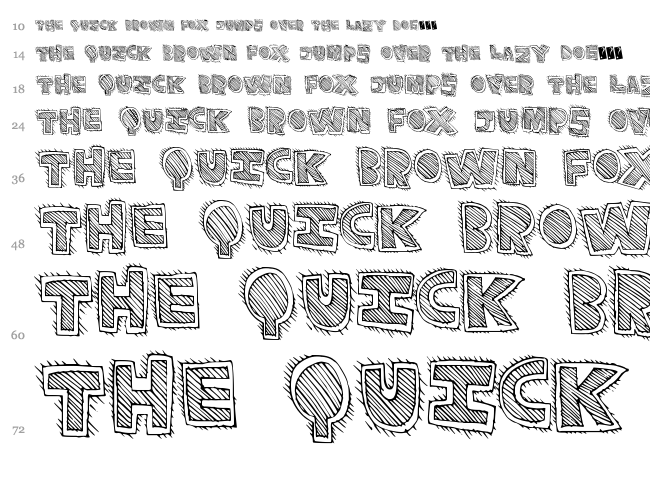 10 THE QUICK BROWN FOX JUMPS OVER THE LAZY DOG
14 THE QUICK BROWN FOX JUMPS OVER THE LAZY DOG
18 THE QUICK BROWN FOX JUMPS OVER THE LAZ
24 THE QUICK BROWN FOX JUMPS OV
36 THE QUICK BROWN FOX
48 THE QUICK BROW
60 THE QUICK BR
72 THE QUICK